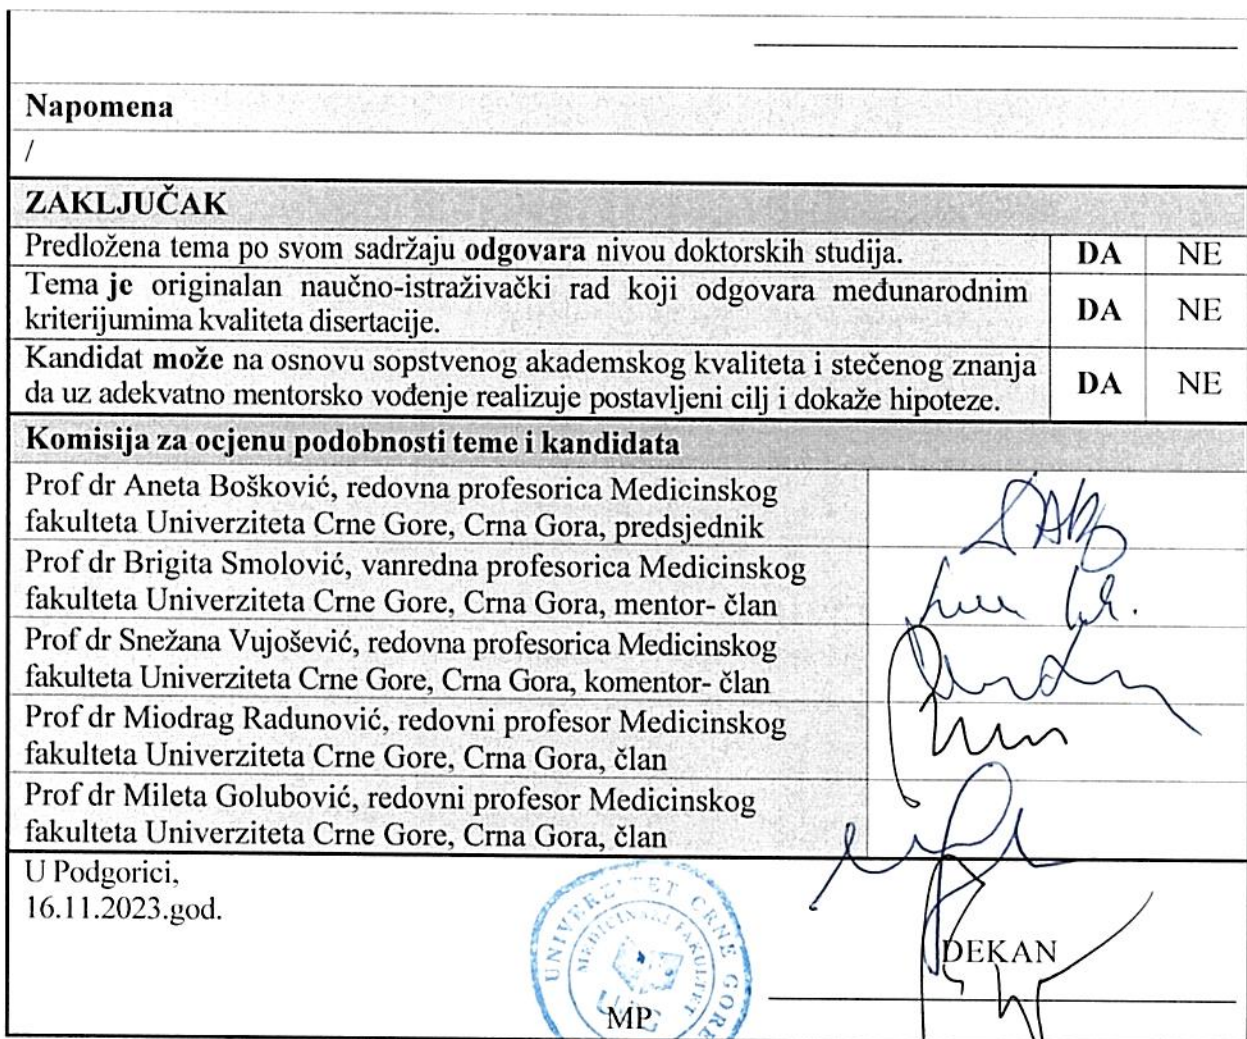 Napomena
/
ZAKLJUČAK
Predložena tema po svom sadržaju odgovara nivou doktorskih studija. DA NE
Tema je originalan naučno-istraživački rad koji odgovara međunarodnim
kriterijumima kvaliteta disertacije. DA NE
Kandidat može na osnovu sopstvenog akademskog kvaliteta i stečenog znanja
da uz adekvatno mentorsko vođenje realizuje postavljeni cilj i dokaže hipoteze. DA NE
Komisija za ocjenu podobnosti teme i kandidata
Prof dr Aneta Bošković, redovna profesorica Medicinskog
fakulteta Univerziteta Crne Gore, Crna Gora, predsjednik
Prof dr Brigita Smolović, vanredna profesorica Medicinskog
fakulteta Univerziteta Crne Gore, Crna Gora, mentor- član
Prof dr Snežana Vujošević, redovna profesorica Medicinskog
fakulteta Univerziteta Crne Gore, Crna Gora, komentor- član
Prof dr Miodrag Radunović, redovni profesor Medicinskog
fakulteta Univerziteta Crne Gore, Crna Gora, član
Prof dr Mileta Golubović, redovni profesor Medicinskog
fakulteta Univerziteta Crne Gore, Crna Gora, član
U Podgorici,
16.11.2023.god.
UNIVERZITET CRNE GORE
MEDICINSKI FAKULTET
DEKAN
MP